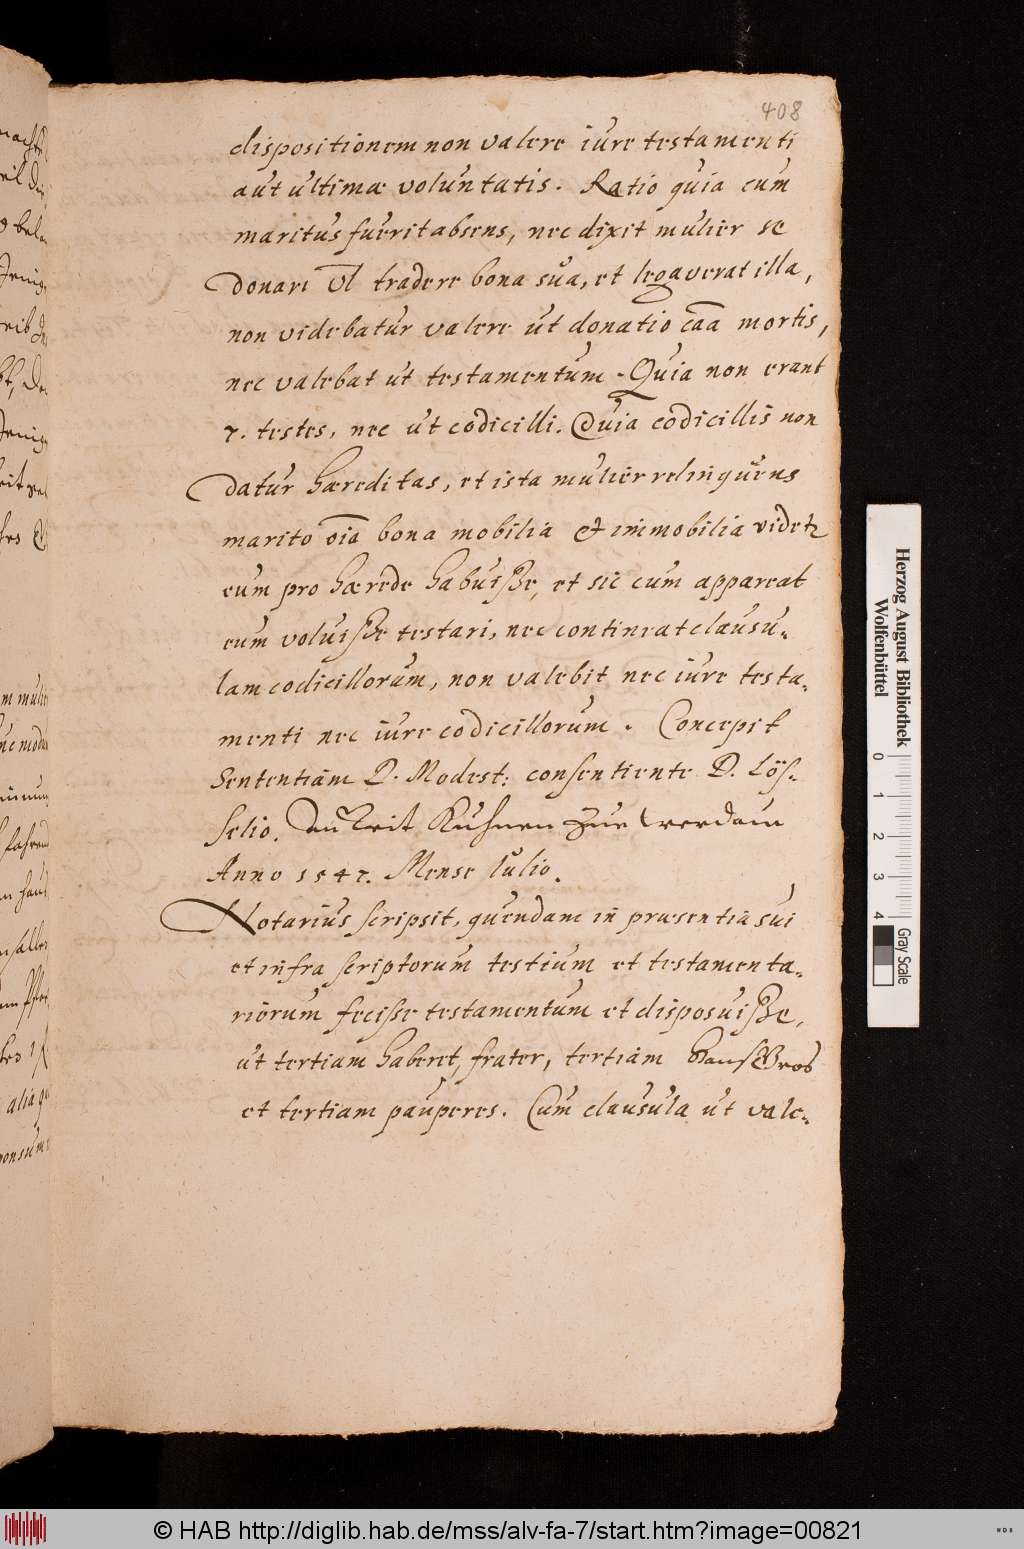 408
dispositionem non valere iure testamenti
aut ultimæ voluntatis. Ratio quia cum
maritus fuerit absens, nec dixit mulier se
donari vl tradere bona sua, et legaverat illa,
non videbatur valere ut donatio cãa mortis,
nec valebat ut testamentum. Quia non erant
7. testes, nec ut codicilli. Quia codicillis non
datur hæreditas, et ista mulier relinquens
marito oĩa bona mobilia & immobilia videtr
eum pro hærede habuiße, et sic cum appareat
eum voluiße testari, nec contineat clausu-
lam codicillorum, non valebit nec iure testa-
menti nec iure codicillorum. Concepit
Sententiam D. Modest: consentiente D. Löſ-
ſelio. An Veit Kuhnen zue Werdaw
Anno 1547. Mense Iulio.
Notarius scripsit, quendam in præsentia sui
et infra scriptorum testium et testamenta-
riorum feciße testamentum et disposuiße,
ut tertiam haberet, frater, tertiam Hanß Gros
et tertiam pauperes. Cum clausula ut vale-
Herzog August Bibliothek
Wolfenbüttel
0 1 2 3 4
Gray Scale
© HAB http://diglib.hab.de/mss/alv-fa-7/start.htm?image=00821